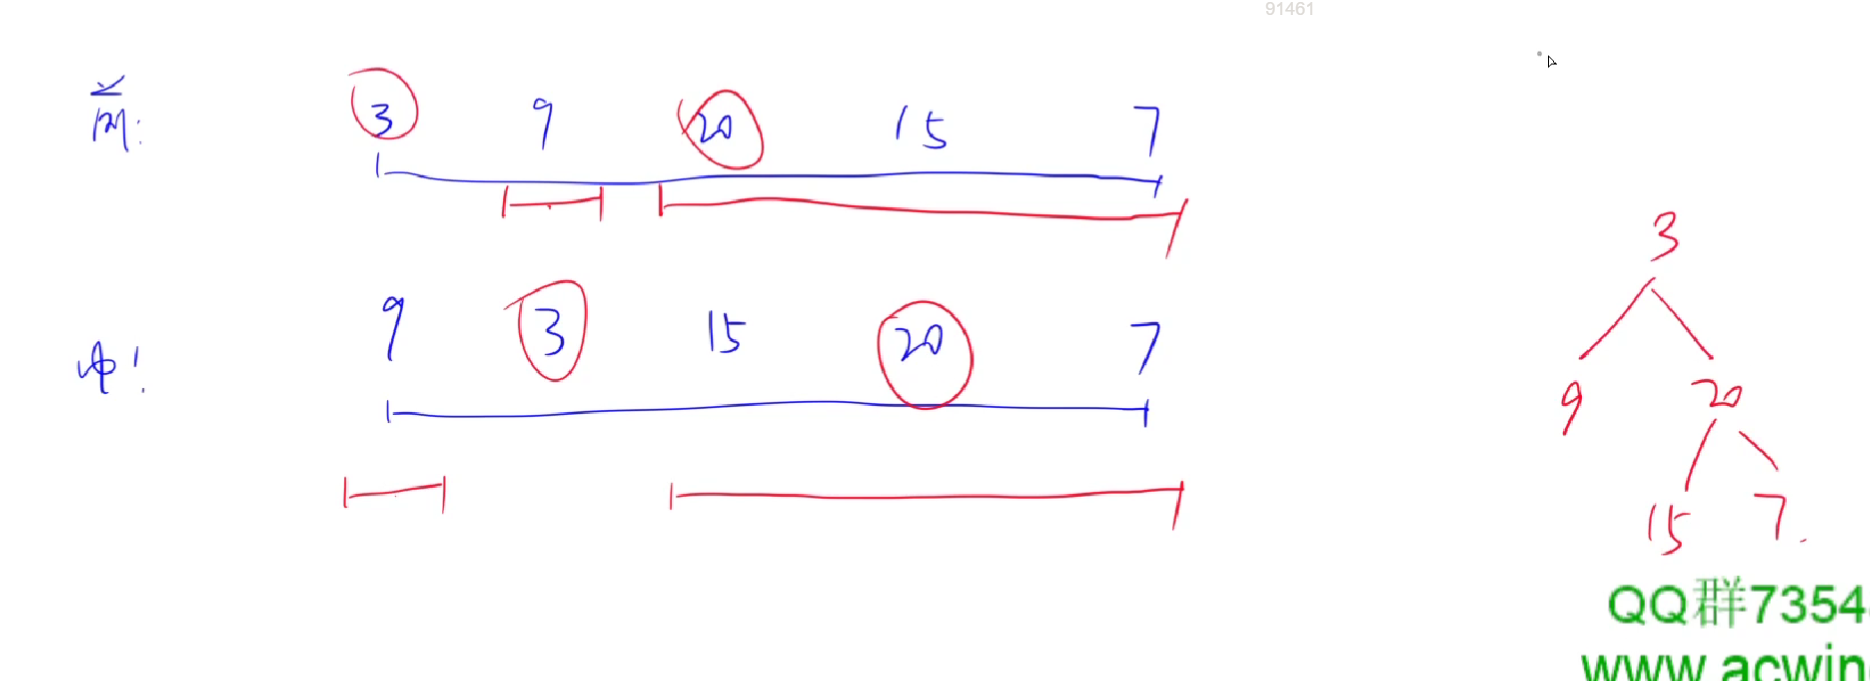 91461
前: 3 9 20 15 7
中: 9 3 15 20 7
3
9 20
15 7.
QQ群7354
www.acwin